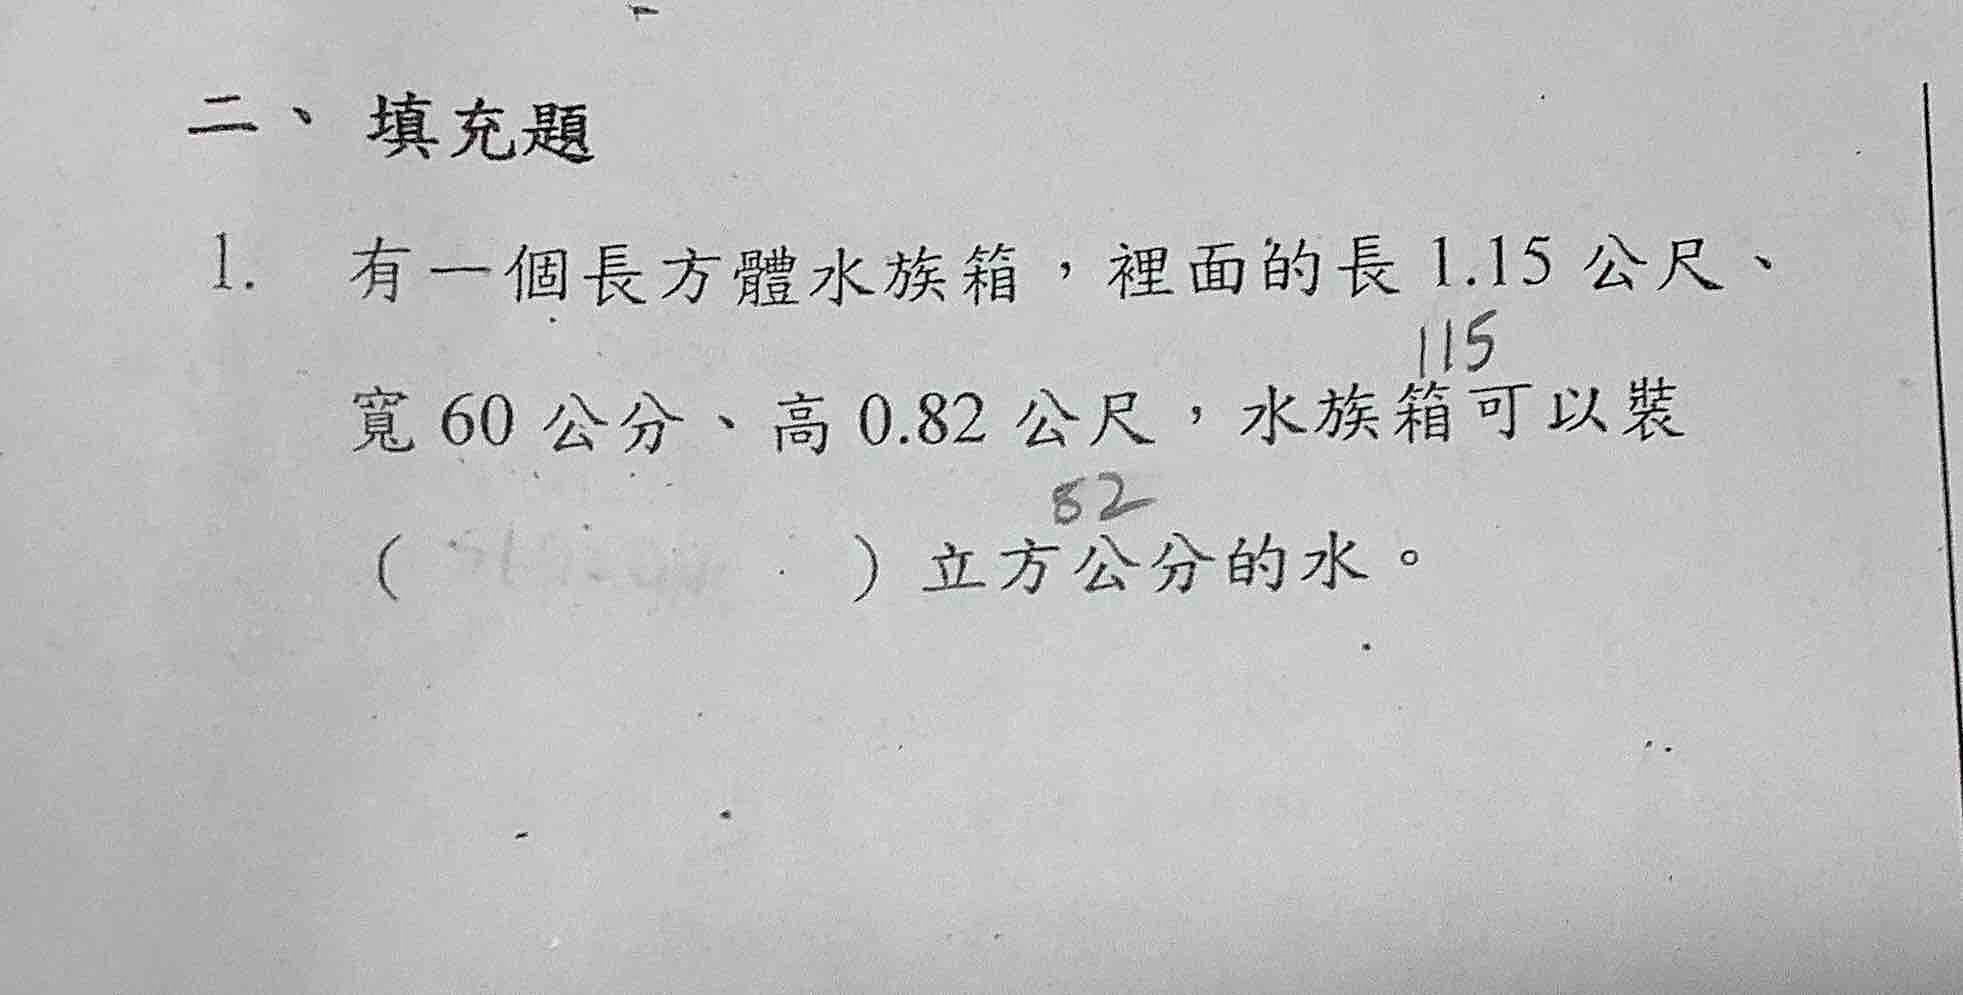 二、填充題
1. 有一個長方體水族箱，裡面的長 1.15 公尺、
115
寬 60 公分、高 0.82 公尺，水族箱可以裝
82
（ ）立方公分的水。